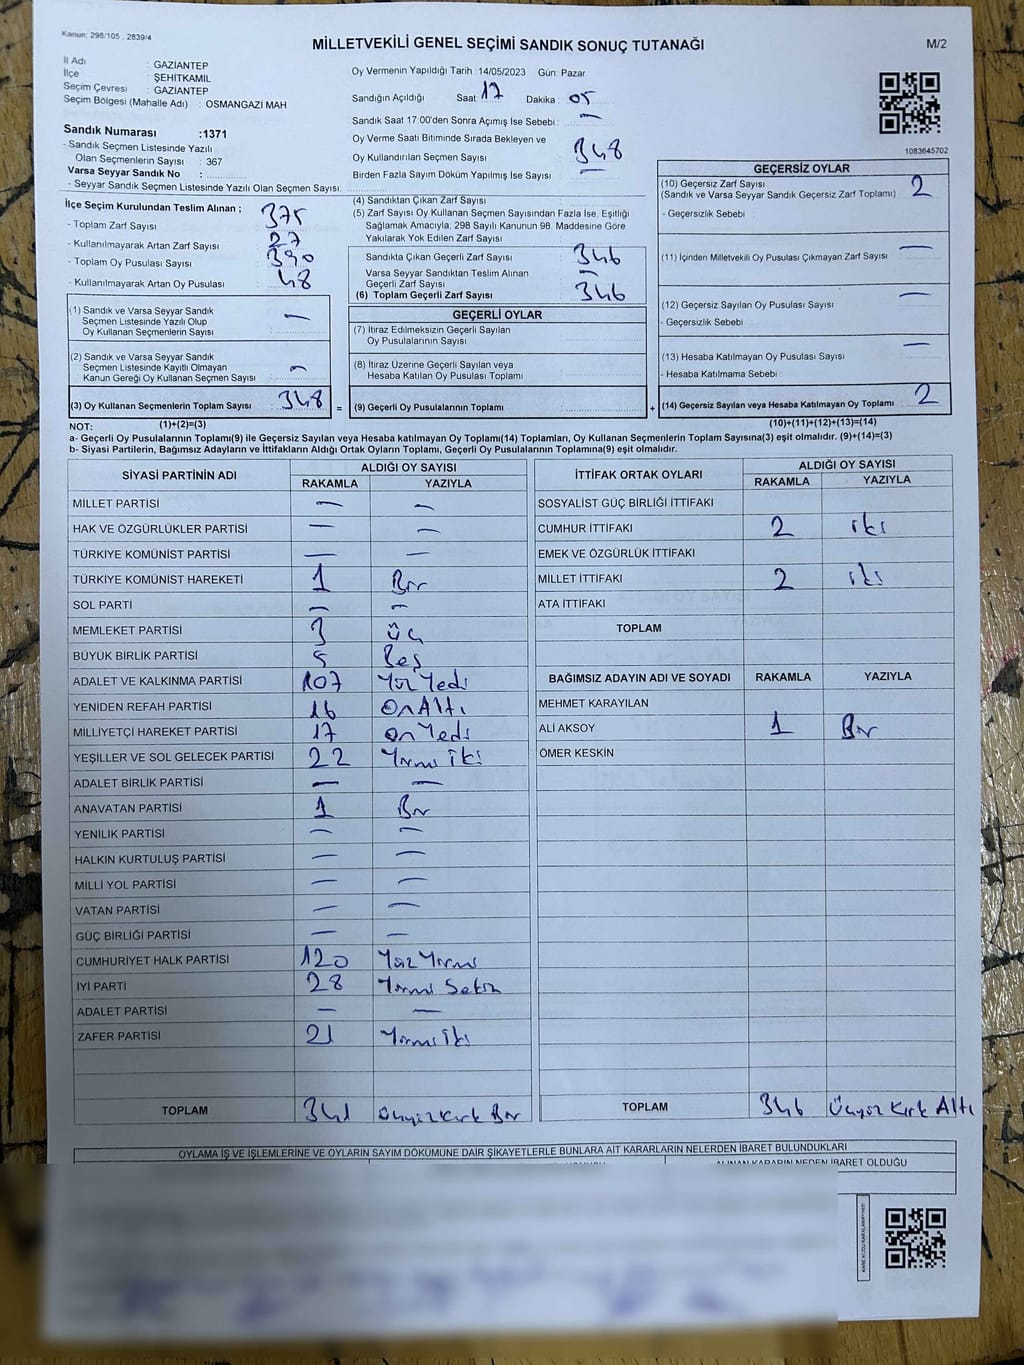 Kanun: 298/105 , 2839/4
MİLLETVEKİLİ GENEL SEÇİMİ SANDIK SONUÇ TUTANAĞI
M/2
İl Adı : GAZİANTEP
İlçe : ŞEHİTKAMİL
Seçim Çevresi : GAZİANTEP
Seçim Bölgesi (Mahalle Adı) : OSMANGAZİ MAH
Oy Vermenin Yapıldığı Tarih : 14/05/2023 Gün: Pazar
Sandığın Açıldığı Saat: 17 Dakika : 05
Sandık Saat 17:00'den Sonra Açımış İse Sebebi : —
Oy Verme Saati Bitiminde Sırada Bekleyen ve
Oy Kullandırılan Seçmen Sayısı : 348
Birden Fazla Sayım Döküm Yapılmış İse Sayısı : —
1083645702
Sandık Numarası :1371
- Sandık Seçmen Listesinde Yazılı
Olan Seçmenlerin Sayısı : 367
Varsa Seyyar Sandık No :
- Seyyar Sandık Seçmen Listesinde Yazılı Olan Seçmen Sayısı:
İlçe Seçim Kurulundan Teslim Alınan ;
- Toplam Zarf Sayısı : 375
- Kullanılmayarak Artan Zarf Sayısı : 27
- Toplam Oy Pusulası Sayısı : 390
- Kullanılmayarak Artan Oy Pusulası : 48
(1) Sandık ve Varsa Seyyar Sandık
Seçmen Listesinde Yazılı Olup
Oy Kullanan Seçmenlerin Sayısı : —
(2) Sandık ve Varsa Seyyar Sandık
Seçmen Listesinde Kayıtlı Olmayan
Kanun Gereği Oy Kullanan Seçmen Sayısı : —
(3) Oy Kullanan Seçmenlerin Toplam Sayısı : 348 =
(1)+(2)=(3)
(4) Sandıktan Çıkan Zarf Sayısı
(5) Zarf Sayısı Oy Kullanan Seçmen Sayısından Fazla İse, Eşitliği
Sağlamak Amacıyla, 298 Sayılı Kanunun 98. Maddesine Göre
Yakılarak Yok Edilen Zarf Sayısı
Sandıkta Çıkan Geçerli Zarf Sayısı : 346
Varsa Seyyar Sandıktan Teslim Alınan
Geçerli Zarf Sayısı : —
(6) Toplam Geçerli Zarf Sayısı : 346
GEÇERLİ OYLAR
(7) İtiraz Edilmeksizin Geçerli Sayılan
Oy Pusulalarının Sayısı :
(8) İtiraz Üzerine Geçerli Sayılan veya
Hesaba Katılan Oy Pusulası Toplamı :
(9) Geçerli Oy Pusulalarının Toplamı : +
GEÇERSİZ OYLAR
(10) Geçersiz Zarf Sayısı
(Sandık ve Varsa Seyyar Sandık Geçersiz Zarf Toplamı) : 2
- Geçersizlik Sebebi :
(11) İçinden Milletvekili Oy Pusulası Çıkmayan Zarf Sayısı : —
(12) Geçersiz Sayılan Oy Pusulası Sayısı : —
- Geçersizlik Sebebi :
(13) Hesaba Katılmayan Oy Pusulası Sayısı : —
- Hesaba Katılmama Sebebi :
(14) Geçersiz Sayılan veya Hesaba Katılmayan Oy Toplamı : 2
(10)+(11)+(12)+(13)=(14)
NOT:
a- Geçerli Oy Pusulalarının Toplamı(9) ile Geçersiz Sayılan veya Hesaba katılmayan Oy Toplamı(14) Toplamları, Oy Kullanan Seçmenlerin Toplam Sayısına(3) eşit olmalıdır. (9)+(14)=(3)
b- Siyasi Partilerin, Bağımsız Adayların ve İttifakların Aldığı Ortak Oyların Toplamı, Geçerli Oy Pusulalarının Toplamına(9) eşit olmalıdır.
SİYASİ PARTİNİN ADI ALDIĞI OY SAYISI
RAKAMLA YAZIYLA
MİLLET PARTİSİ — —
HAK VE ÖZGÜRLÜKLER PARTİSİ — —
TÜRKİYE KOMÜNİST PARTİSİ — —
TÜRKİYE KOMÜNİST HAREKETİ 1 Bir
SOL PARTİ — —
MEMLEKET PARTİSİ 3 Üç
BÜYÜK BİRLİK PARTİSİ 5 Beş
ADALET VE KALKINMA PARTİSİ 107 Yüz Yedi
YENİDEN REFAH PARTİSİ 16 On Altı
MİLLİYETÇİ HAREKET PARTİSİ 17 On Yedi
YEŞİLLER VE SOL GELECEK PARTİSİ 22 Yirmi iki
ADALET BİRLİK PARTİSİ — —
ANAVATAN PARTİSİ 1 Bir
YENİLİK PARTİSİ — —
HALKIN KURTULUŞ PARTİSİ — —
MİLLİ YOL PARTİSİ — —
VATAN PARTİSİ — —
GÜÇ BİRLİĞİ PARTİSİ — —
CUMHURİYET HALK PARTİSİ 120 Yüz Yirmi
İYİ PARTİ 28 Yirmi Sekiz
ADALET PARTİSİ — —
ZAFER PARTİSİ 21 Yirmi iki
TOPLAM 341 Üçyüz Kırk Bir
İTTİFAK ORTAK OYLARI ALDIĞI OY SAYISI
RAKAMLA YAZIYLA
SOSYALİST GÜÇ BİRLİĞİ İTTİFAKI
CUMHUR İTTİFAKI 2 iki
EMEK VE ÖZGÜRLÜK İTTİFAKI
MİLLET İTTİFAKI 2 iki
ATA İTTİFAKI
TOPLAM
BAĞIMSIZ ADAYIN ADI VE SOYADI RAKAMLA YAZIYLA
MEHMET KARAYILAN
ALİ AKSOY 1 Bir
ÖMER KESKİN
TOPLAM 346 Üçyüz Kırk Altı
OYLAMA İŞ VE İŞLEMLERİNE VE OYLARIN SAYIM DÖKÜMÜNE DAİR ŞİKAYETLERLE BUNLARA AİT KARARLARIN NELERDEN İBARET BULUNDUKLARI
ALINAN KARARIN NEDEN İBARET OLDUĞU